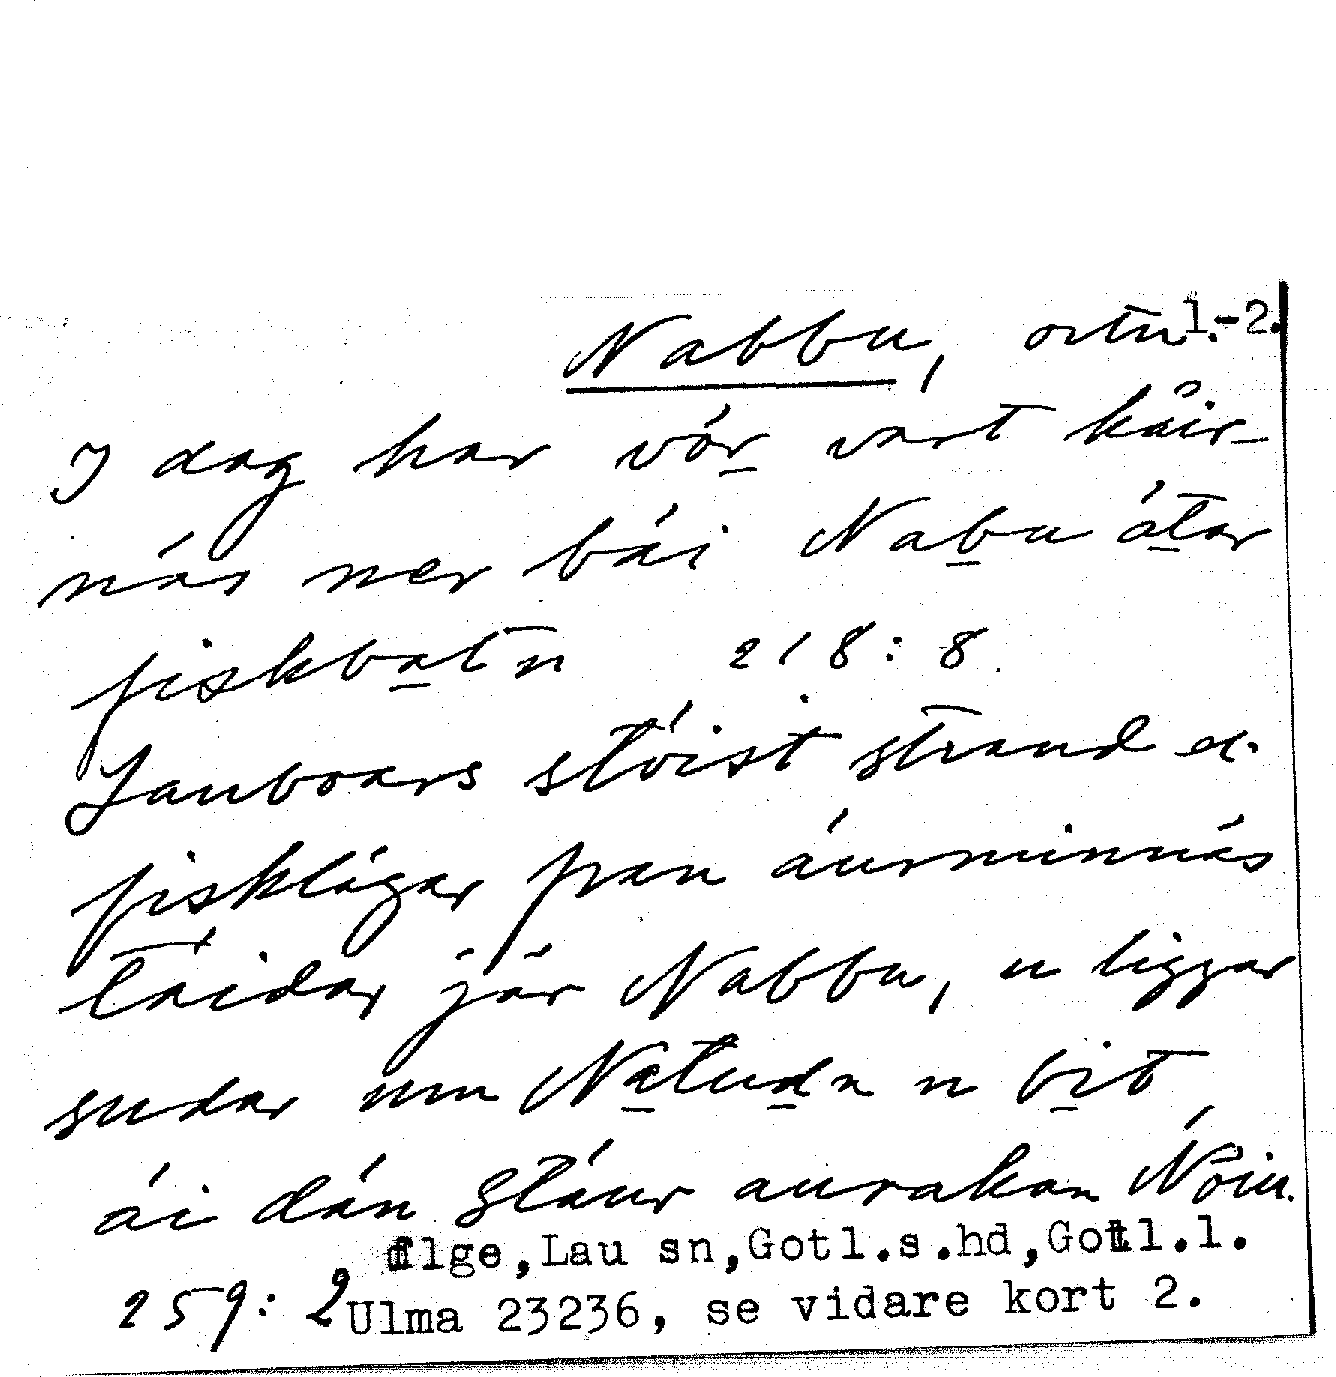 Nabbu, ortn. 1-2.
I dag har vór vart kåir-
nás ner bái Nabu átar
fiskbatn 218:8.
Lauboars stóist strand o.
fisklágar fran áurminnás
táidar jär Nabbu, u liggar
sudar um Natudn n bit
ái dán stáur aurakan Nóiu.
Alge, Lau sn, Gotl.s.hd, Gotl.l.
259:2 Ulma 23236, se vidare kort 2.